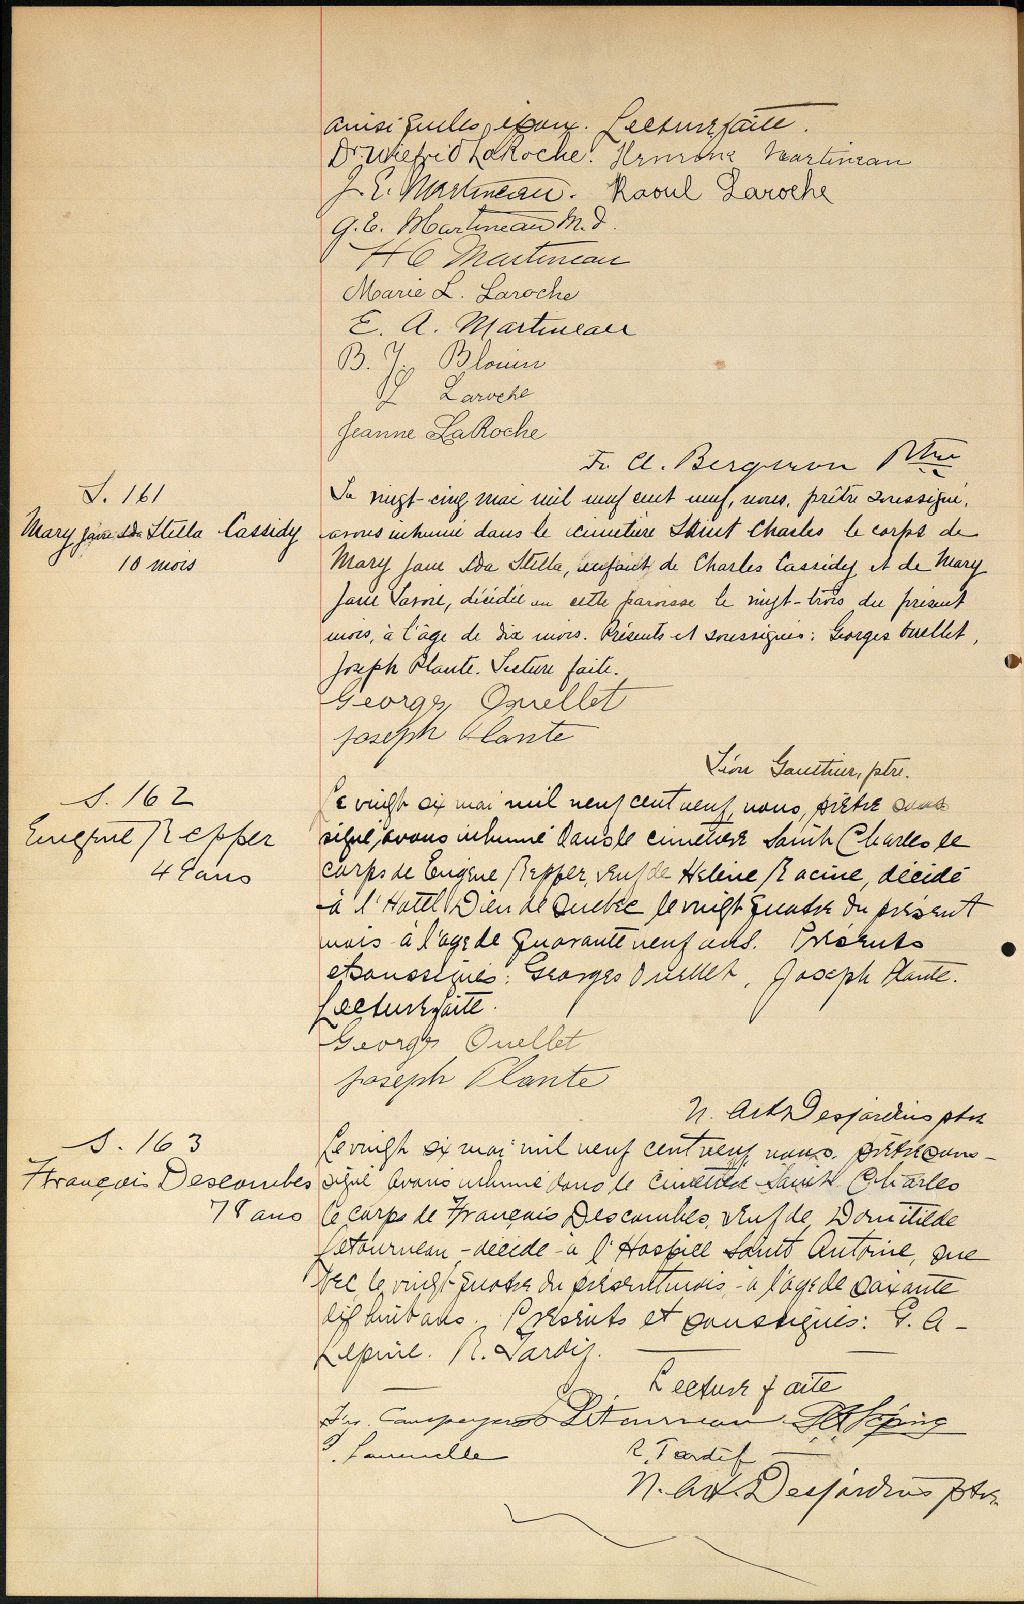 ainsi que les époux. Lecture faite.
Dr. Wilfrid LaRoche. Hermine Martineau
J. E. Martineau. Raoul Laroche
G. E. Martineau M.d.
H C Martineau
Marie L. Laroche
E. A. Martineau
B. J. Blouin
L Laroche
Jeanne LaRoche
Fr. A. Bergeron Ptre
S. 161
Mary Jane Ida Stella Cassidy
10 mois
Le vingt-cinq mai mil neuf cent neuf, nous, prêtre soussigné,
avons inhumé dans le cimetière Saint Charles le corps de
Mary Jane Ida Stella, enfant de Charles Cassidy et de Mary
Jane Savoie, décédée en cette paroisse le vingt-trois du présent
mois, à l'âge de dix mois. Présents et soussignés: Georges Ouellet,
Joseph Plante. Lecture faite.
Georges Ouellet
Joseph Plante
Léon Gauthier, ptre.
S. 162
Eugène Repper
49 ans
Le vingt six mai mil neuf cent neuf, nous, prêtre sous
signé, avons inhumé dans le cimetière Saint Charles le
corps de Eugène Repper, veuf de Helène Racine, décédé
à l'Hotel Dieu de Quebec le vingt quatre du présent
mois à l'age de quarante neuf ans. Présents
et soussignés: Georges Ouellet, Joseph Plante.
Lecture faite.
Georges Ouellet
Joseph Plante
N. Art. Desjardins ptre
S. 163
François Descombes
78 ans
Le vingt six mai mil neuf cent neuf, nous, prêtre sous-
signé avons inhumé dans le cimetière Saint Charles
le corps de François Descombes, veuf de Domitilde
Letourneau, décédé à l'Hospice Saint Antoine, Que
bec, le vingt quatre du présent mois, à l'age de soixante
dix huit ans. Présents et soussignés: G. A-
Lepine. R. Tardif.
Lecture faite
Letourneau G A Lépine
R. Tardif
N. Art. Desjardins ptre